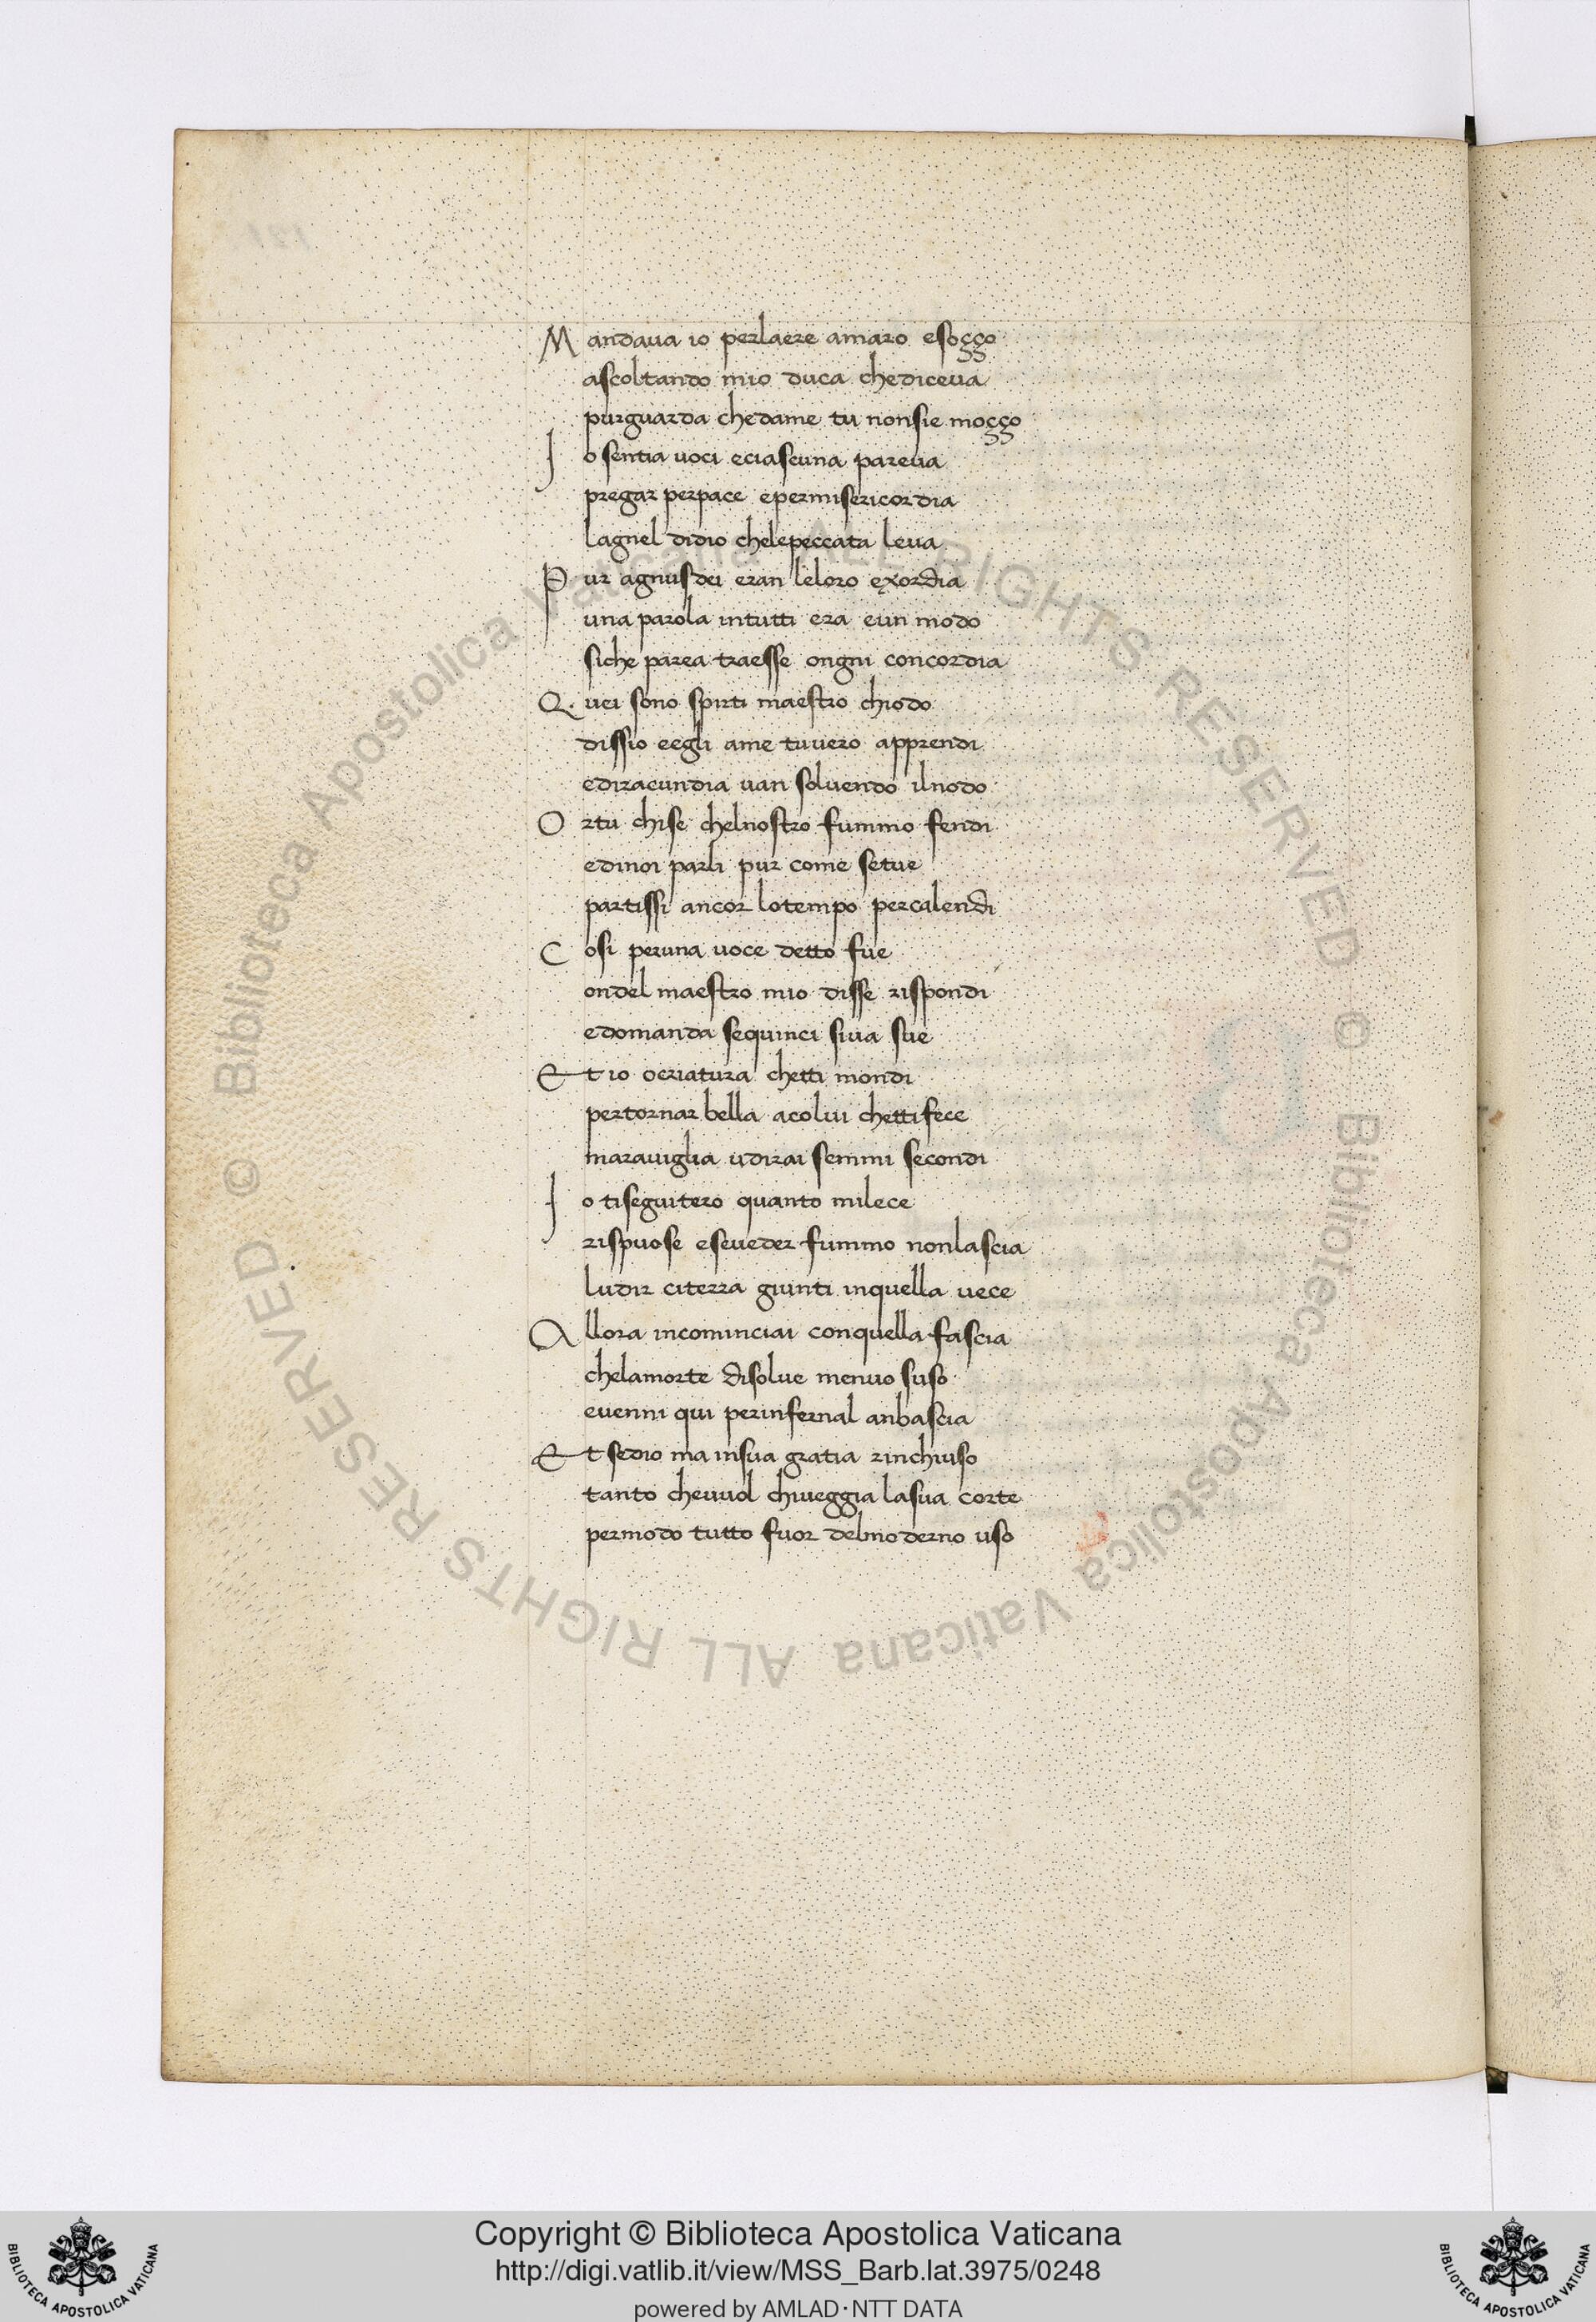 M andaua io perlaere amaro esoçço
ascoltando mio duca chediceua
purguarda chedame tu nonsie moçço
I o sentia uoci eciascuna pareua
pregar perpace epermisericordia
lagnel didio chelepeccata leua
P ur agnusdei eran leloro exordia
una parola intutti era eun modo
siche parea traesse ongni concordia
Q uei sono spirti maestro chiodo
dissio eegli ame tuuero apprendi
ediracundia uan soluendo ilnodo
O rtu chise chelnostro fummo fendi
edinoi parli pur come setue
partissi ancor lotempo percalendi
C osi peruna uoce detto fue
ondel maestro mio disse rispondi
edomanda sequinci siua sue
E t io ocriatura chetti mondi
pertornar bella acolui chettifece
marauiglia udirai semmi secondi
I o tiseguitero quanto milece
rispuose eseueder fummo nonlascia
ludir citerra giunti inquella uece
A llora incominciai conquella fascia
chelamorte disolue menuo suso
euenni qui perinfernal anbascia
E t sedio ma insua gratia rinchiuso
tanto cheuuol chiueggia lasua corte
permodo tutto fuor delmoderno uso
© Biblioteca Apostolica Vaticana ALL RIGHTS RESERVED © Biblioteca Apostolica Vaticana ALL RIGHTS RESERVED
Copyright © Biblioteca Apostolica Vaticana
http://digi.vatlib.it/view/MSS_Barb.lat.3975/0248
powered by AMLAD·NTT DATA
BIBLIOTECA APOSTOLICA VATICANA
BIBLIOTECA APOSTOLICA VATICANA